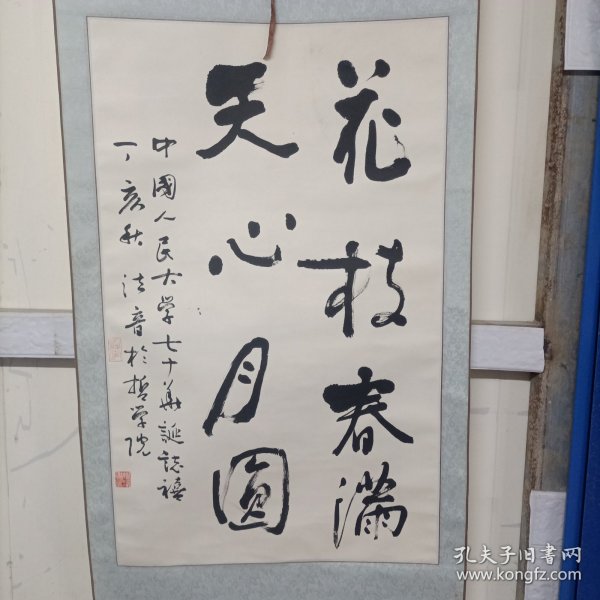 花枝春滿
天心月圓
中國人民大学七十華誕誌禧
丁亥秋 法音於哲学院
孔夫子旧書网
www.kongfz.com